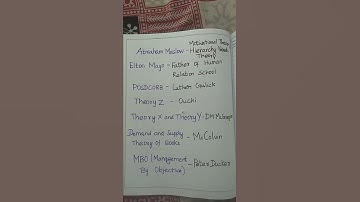 Motivational Theory
Abraham Maslow - Hierarchy Need
Theory
Elton Mayo - Father of Human
Relation School
POSDCORB - Luther Gulick
Theory Z - Ouchi
Theory X and Theory Y - DM McGregor
Demand and Supply
Theory of Books - McColvin
MBO (Management
By Objective) - Peter Ducker